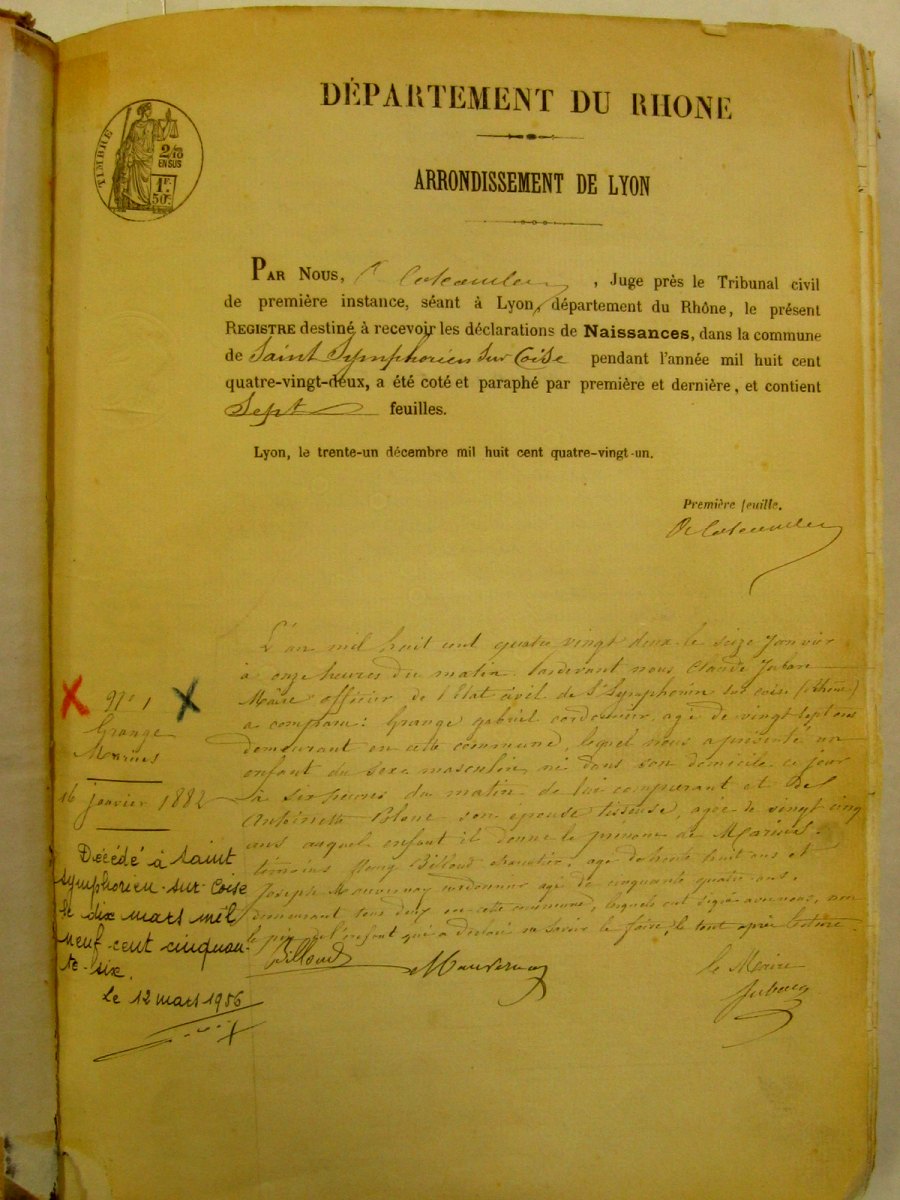 DÉPARTEMENT DU RHONE
TIMBRE
2/10
EN SUS
1F.
50c.
ARRONDISSEMENT DE LYON
PAR NOUS, , Juge près le Tribunal civil
de première instance, séant à Lyon, département du Rhône, le présent
REGISTRE destiné à recevoir les déclarations de Naissances, dans la commune
de Saint Symphorien sur Coise pendant l'année mil huit cent
quatre-vingt-deux, a été coté et paraphé par première et dernière, et contient
Sept feuilles.
Lyon, le trente-un décembre mil huit cent quatre-vingt-un.
Première feuille.
No 1
Grange
Marius
16 janvier 1882
Décédé à Saint
Symphorien-sur-Coise
le dix mars mil
neuf cent cinquan-
te-six.
Le 12 mars 1956
L'an mil huit cent quatre vingt deux le seize Janvier
à onze heures du matin pardevant nous Claude
Maire officier de l'Etat civil de St Symphorien sur Coise (Rhône)
a comparu: Grange gabriel cordonnier, agé de vingt sept ans
demeurant en cette commune, lequel nous a présenté un
enfant du sexe masculin né dans son domicile ce jour
à six heures du matin de lui comparant et de
Antoinette Blanc son épouse tisseuse, agée de vingt cinq
ans auquel enfant il donne le prénom de Marius.
témoins Billoud agé de trente huit ans et
Joseph cordonnier agé de cinquante quatre ans,
demeurant tous deux en cette commune, lesquels ont signé avec nous, non
le père de l'enfant qui a déclaré ne savoir le faire, le tout après lecture
Billoud
le Maire